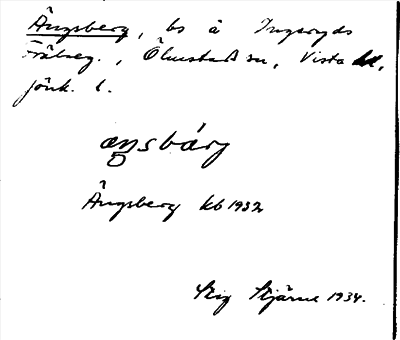 Ängsberg, bs å Ingaryds
Frälseg., Ölmstad sn, Vista hd,
Jönk. l.
aŋsbárj
Ängsberg kb 1932
Stig Stjärne 1934.